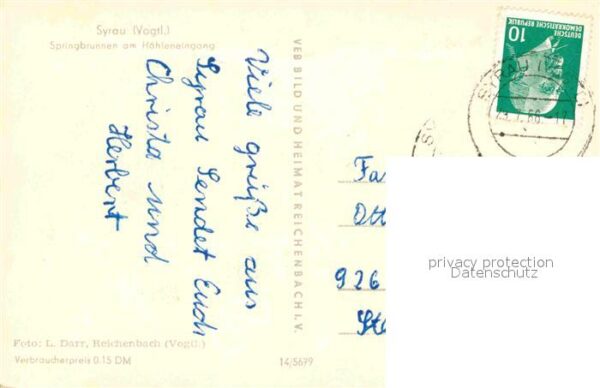 Syrau (Vogtl.)
Springbrunnen am Höhleneingang
Viele grüße aus
Syrau Sendet Euch
Christa und
Herbert
VEB BILD UND HEIMAT REICHENBACH I. V.
DEUTSCHE
DEMOKRATISCHE REPUBLIK
10
SYRAU
Fa
Ott
926
privacy protection
Datenschutz
Foto: L. Darr, Reichenbach (Vogtl.)
Verbraucherpreis 0.15 DM
14/5699